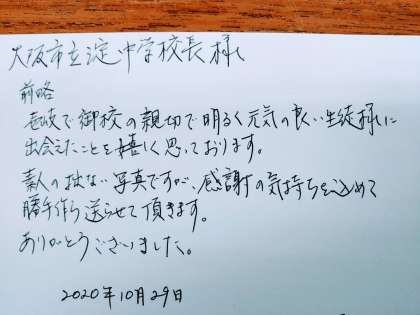 大阪市立淀中学校長様
前略
壱岐で御校の親切で明るく元気の良い生徒様に
出会えたことを嬉しく思っております。
素人の拙ない写真ですが、感謝の気持ちを込めて
勝手乍ら送らせて頂きます。
ありがとうございました。
2020年10月29日